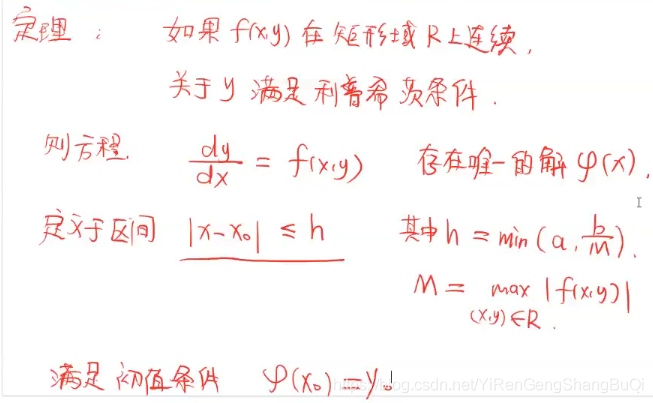 定理： 如果 f(x,y) 在矩形域 R 上连续，
关于 y 满足利普希茨条件．
则方程 dy/dx = f(x,y) 存在唯一的解 φ(x)，
定义于区间 |x-x₀| ≤ h 其中 h = min(a, b/M)．
M = max |f(x,y)|
(x,y)∈R．
满足初值条件 φ(x₀) = y₀
https://blog.csdn.net/YiRenGengShangBuQi